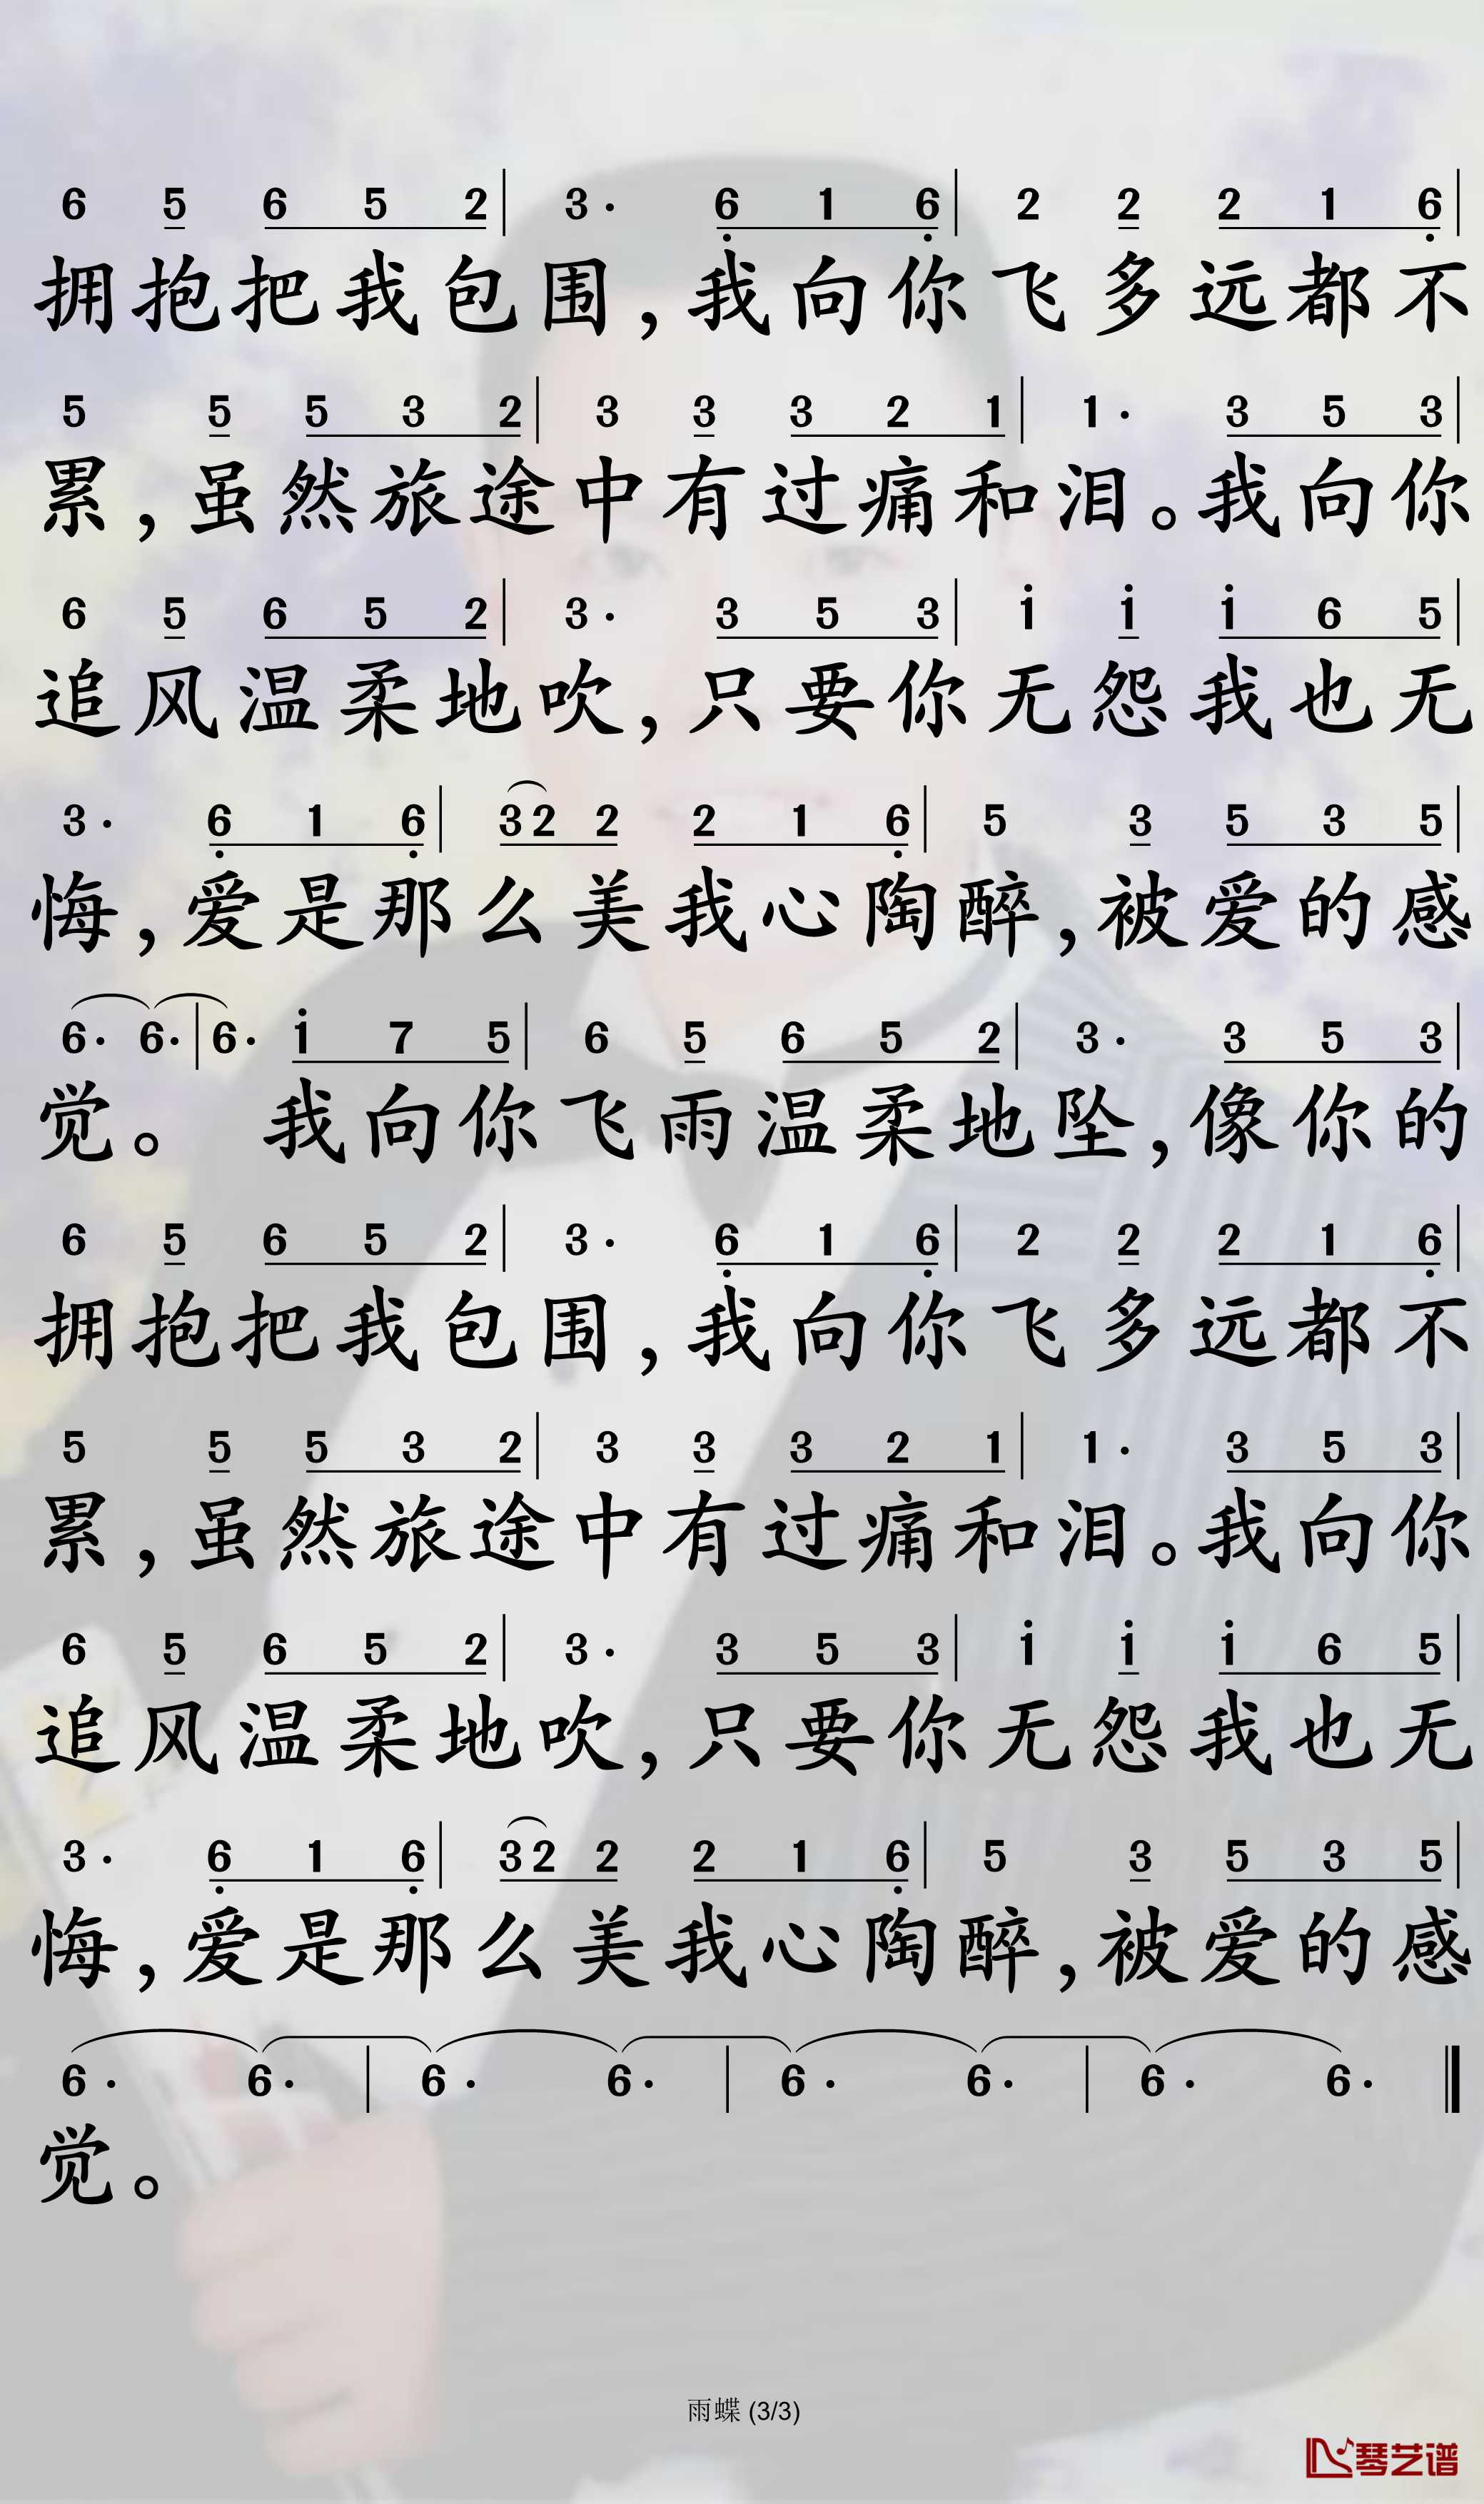 6 5 6 5 2 | 3· 6̣ 1 6̣ | 2 2 2 1 6̣ |
拥抱把我包围，我向你飞多远都不
5 5 5 3 2 | 3 3 3 2 1 | 1· 3 5 3 |
累，虽然旅途中有过痛和泪。我向你
6 5 6 5 2 | 3· 3 5 3 | i i i 6 5 |
追风温柔地吹，只要你无怨我也无
3· 6̣ 1 6̣ | 3 2 2 2 1 6̣ | 5 3 5 3 5 |
悔，爱是那么美我心陶醉，被爱的感
6· 6· | 6· i 7 5 | 6 5 6 5 2 | 3· 3 5 3 |
觉。 我向你飞雨温柔地坠，像你的
6 5 6 5 2 | 3· 6̣ 1 6̣ | 2 2 2 1 6̣ |
拥抱把我包围，我向你飞多远都不
5 5 5 3 2 | 3 3 3 2 1 | 1· 3 5 3 |
累，虽然旅途中有过痛和泪。我向你
6 5 6 5 2 | 3· 3 5 3 | i i i 6 5 |
追风温柔地吹，只要你无怨我也无
3· 6̣ 1 6̣ | 3 2 2 2 1 6̣ | 5 3 5 3 5 |
悔，爱是那么美我心陶醉，被爱的感
6· 6· | 6· 6· | 6· 6· | 6· 6·
觉。
雨蝶 (3/3)
琴艺谱